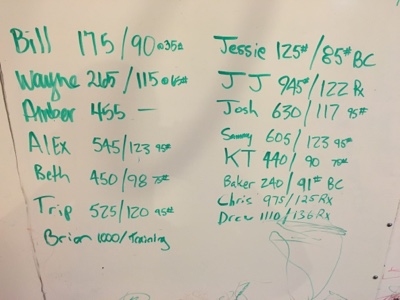 Bill 175/90 @35#
Wayne 265/115 @65#
Amber 455 —
Alex 545/123 95#
Beth 450/98 75#
Trip 525/120 95#
Brian 1000/Training
Jessie 125#/85# BC
JJ 945#/122 Rx
Josh 630/117 95#
Sammy 605/123 95#
KT 440/90 75#
Baker 240/91# BC
Chris 975/125 Rx
Drew 1110/136 Rx